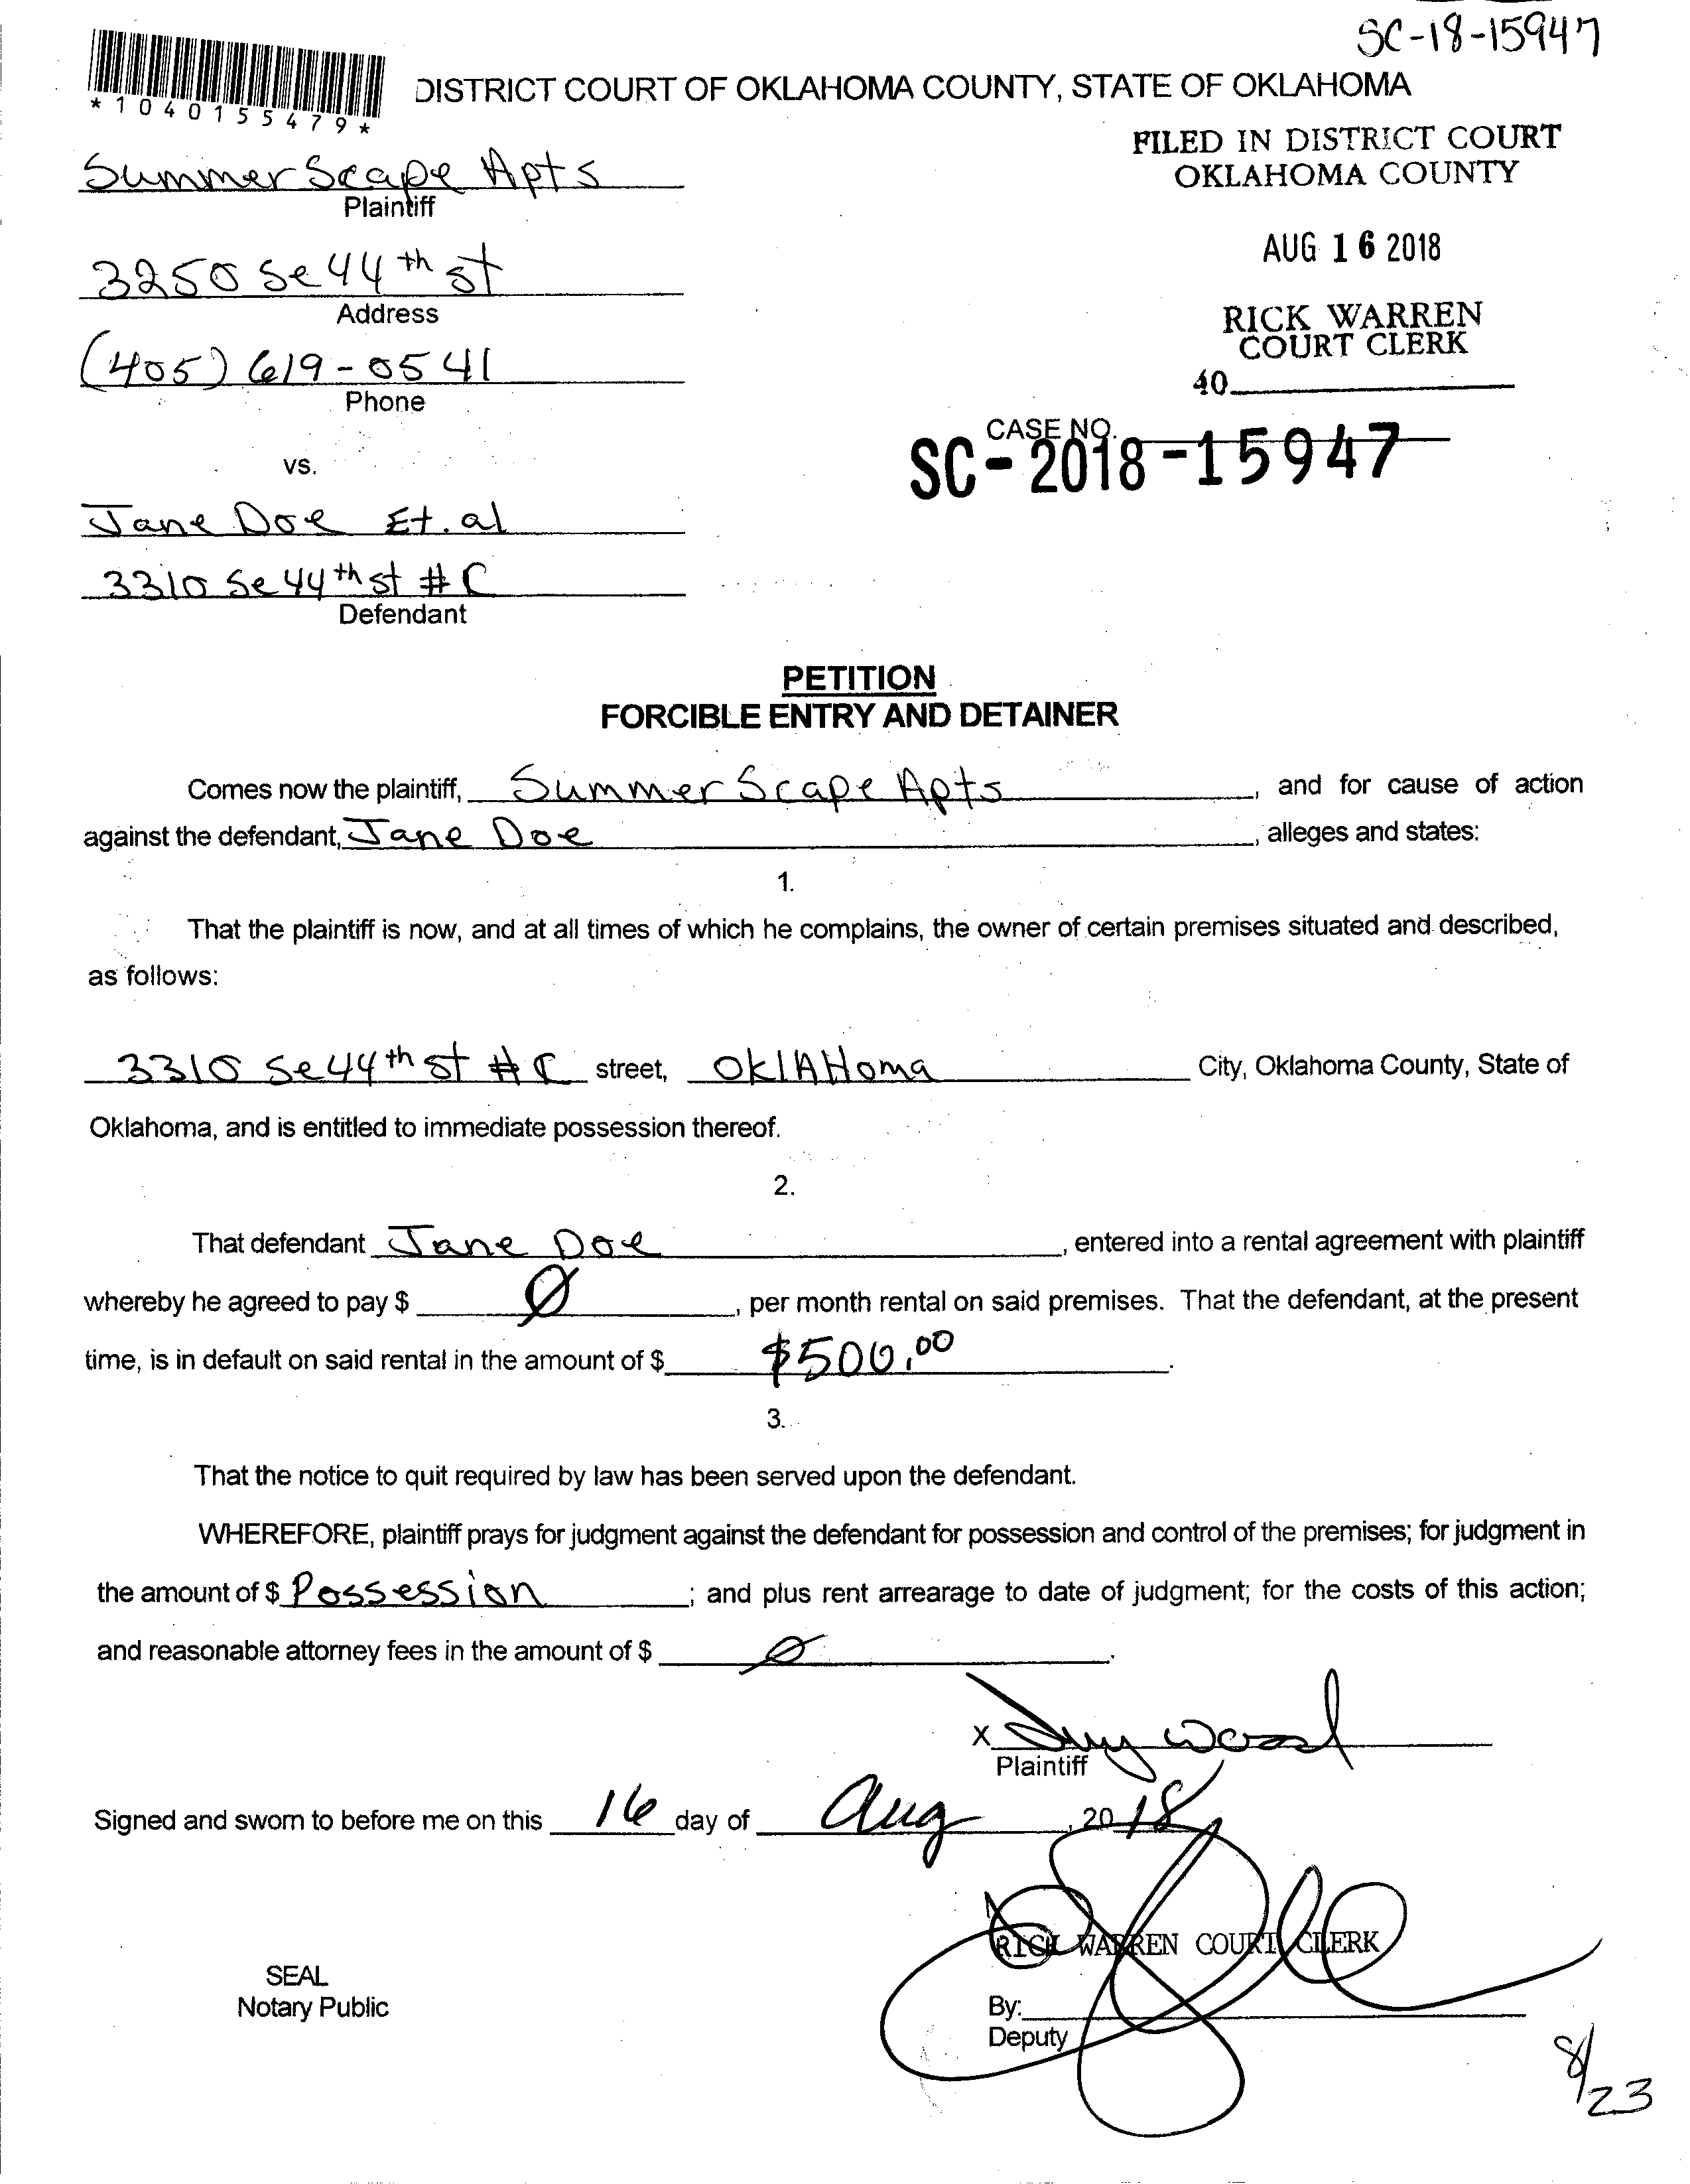 SC-18-15947
*1040155479*
DISTRICT COURT OF OKLAHOMA COUNTY, STATE OF OKLAHOMA
FILED IN DISTRICT COURT
OKLAHOMA COUNTY
Summer Scape Apts
Plaintiff
AUG 16 2018
3250 Se 44th st
Address
RICK WARREN
COURT CLERK
(405) 619-0541
Phone
40
CASE NO.
SC-2018-15947
vs.
Jane Doe Et. al
3310 Se 44th st # C
Defendant
PETITION
FORCIBLE ENTRY AND DETAINER
Comes now the plaintiff, Summer Scape Apts, and for cause of action
against the defendant, Jane Doe, alleges and states:
1.
That the plaintiff is now, and at all times of which he complains, the owner of certain premises situated and described,
as follows:
3310 Se 44th st # C street, OklAHoma City, Oklahoma County, State of
Oklahoma, and is entitled to immediate possession thereof.
2.
That defendant Jane Doe, entered into a rental agreement with plaintiff
whereby he agreed to pay $ Ø, per month rental on said premises. That the defendant, at the present
time, is in default on said rental in the amount of $ $500.00.
3.
That the notice to quit required by law has been served upon the defendant.
WHEREFORE, plaintiff prays for judgment against the defendant for possession and control of the premises; for judgment in
the amount of $ Possession; and plus rent arrearage to date of judgment; for the costs of this action;
and reasonable attorney fees in the amount of $ Ø.
X Wood
Plaintiff
Signed and sworn to before me on this 16 day of Aug, 2018
RICK WARREN COURT CLERK
SEAL
Notary Public
By:
Deputy
8/23